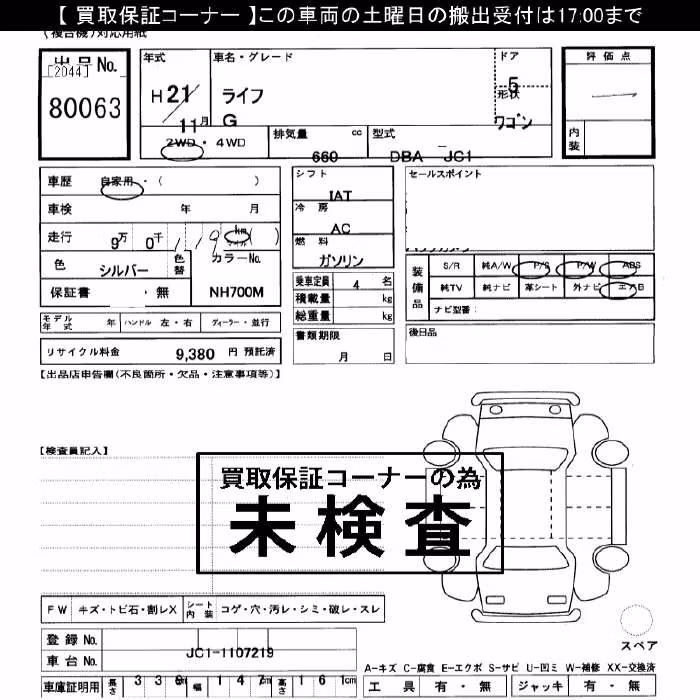 【 買取保証コーナー 】この車両の土曜日の搬出受付は17:00まで
(複合機)対応用紙
出品No.
[2044]
80063
年式
H 21
11月
車名・グレード
ライフ
G
ドア
5
形状
ワゴン
評価点
内装
2WD ・ 4WD
排気量 cc
660
型式
DBA JC1
車歴 自家用・( )
車検 年 月
走行 9万 0千 119 km マイル ( )
色 シルバー
色替
カラーNo.
NH700M
保証書 ・ 無
シフト
IAT
冷房
AC
燃料
ガソリン
乗車定員 4 名
積載量 kg
総重量 kg
セールスポイント
装備品
S/R 純A/W P/S P/W ABS
純TV 純ナビ 革シート 外ナビ エアB
ナビ型番:
モデル年式 年 ハンドル 左・右 ディーラー・並行
リサイクル料金 9,380 円 預託済
書類期限
月 日
後日品
【出品店申告欄(不良箇所・欠品・注意事項等)】
【検査員記入】
買取保証コーナーの為
未検査
FW キズ・トビ石・割レX
シート内装 コゲ・穴・汚レ・シミ・破レ・スレ
登録No.
車台No. JC1-1107219
車庫証明用 長さ 339cm 幅 147cm 高さ 161cm
スペア
A-キズ C-腐食 E-エクボ S-サビ U-凹ミ W-補修 XX-交換済
工具 有・無 ジャッキ 有・無